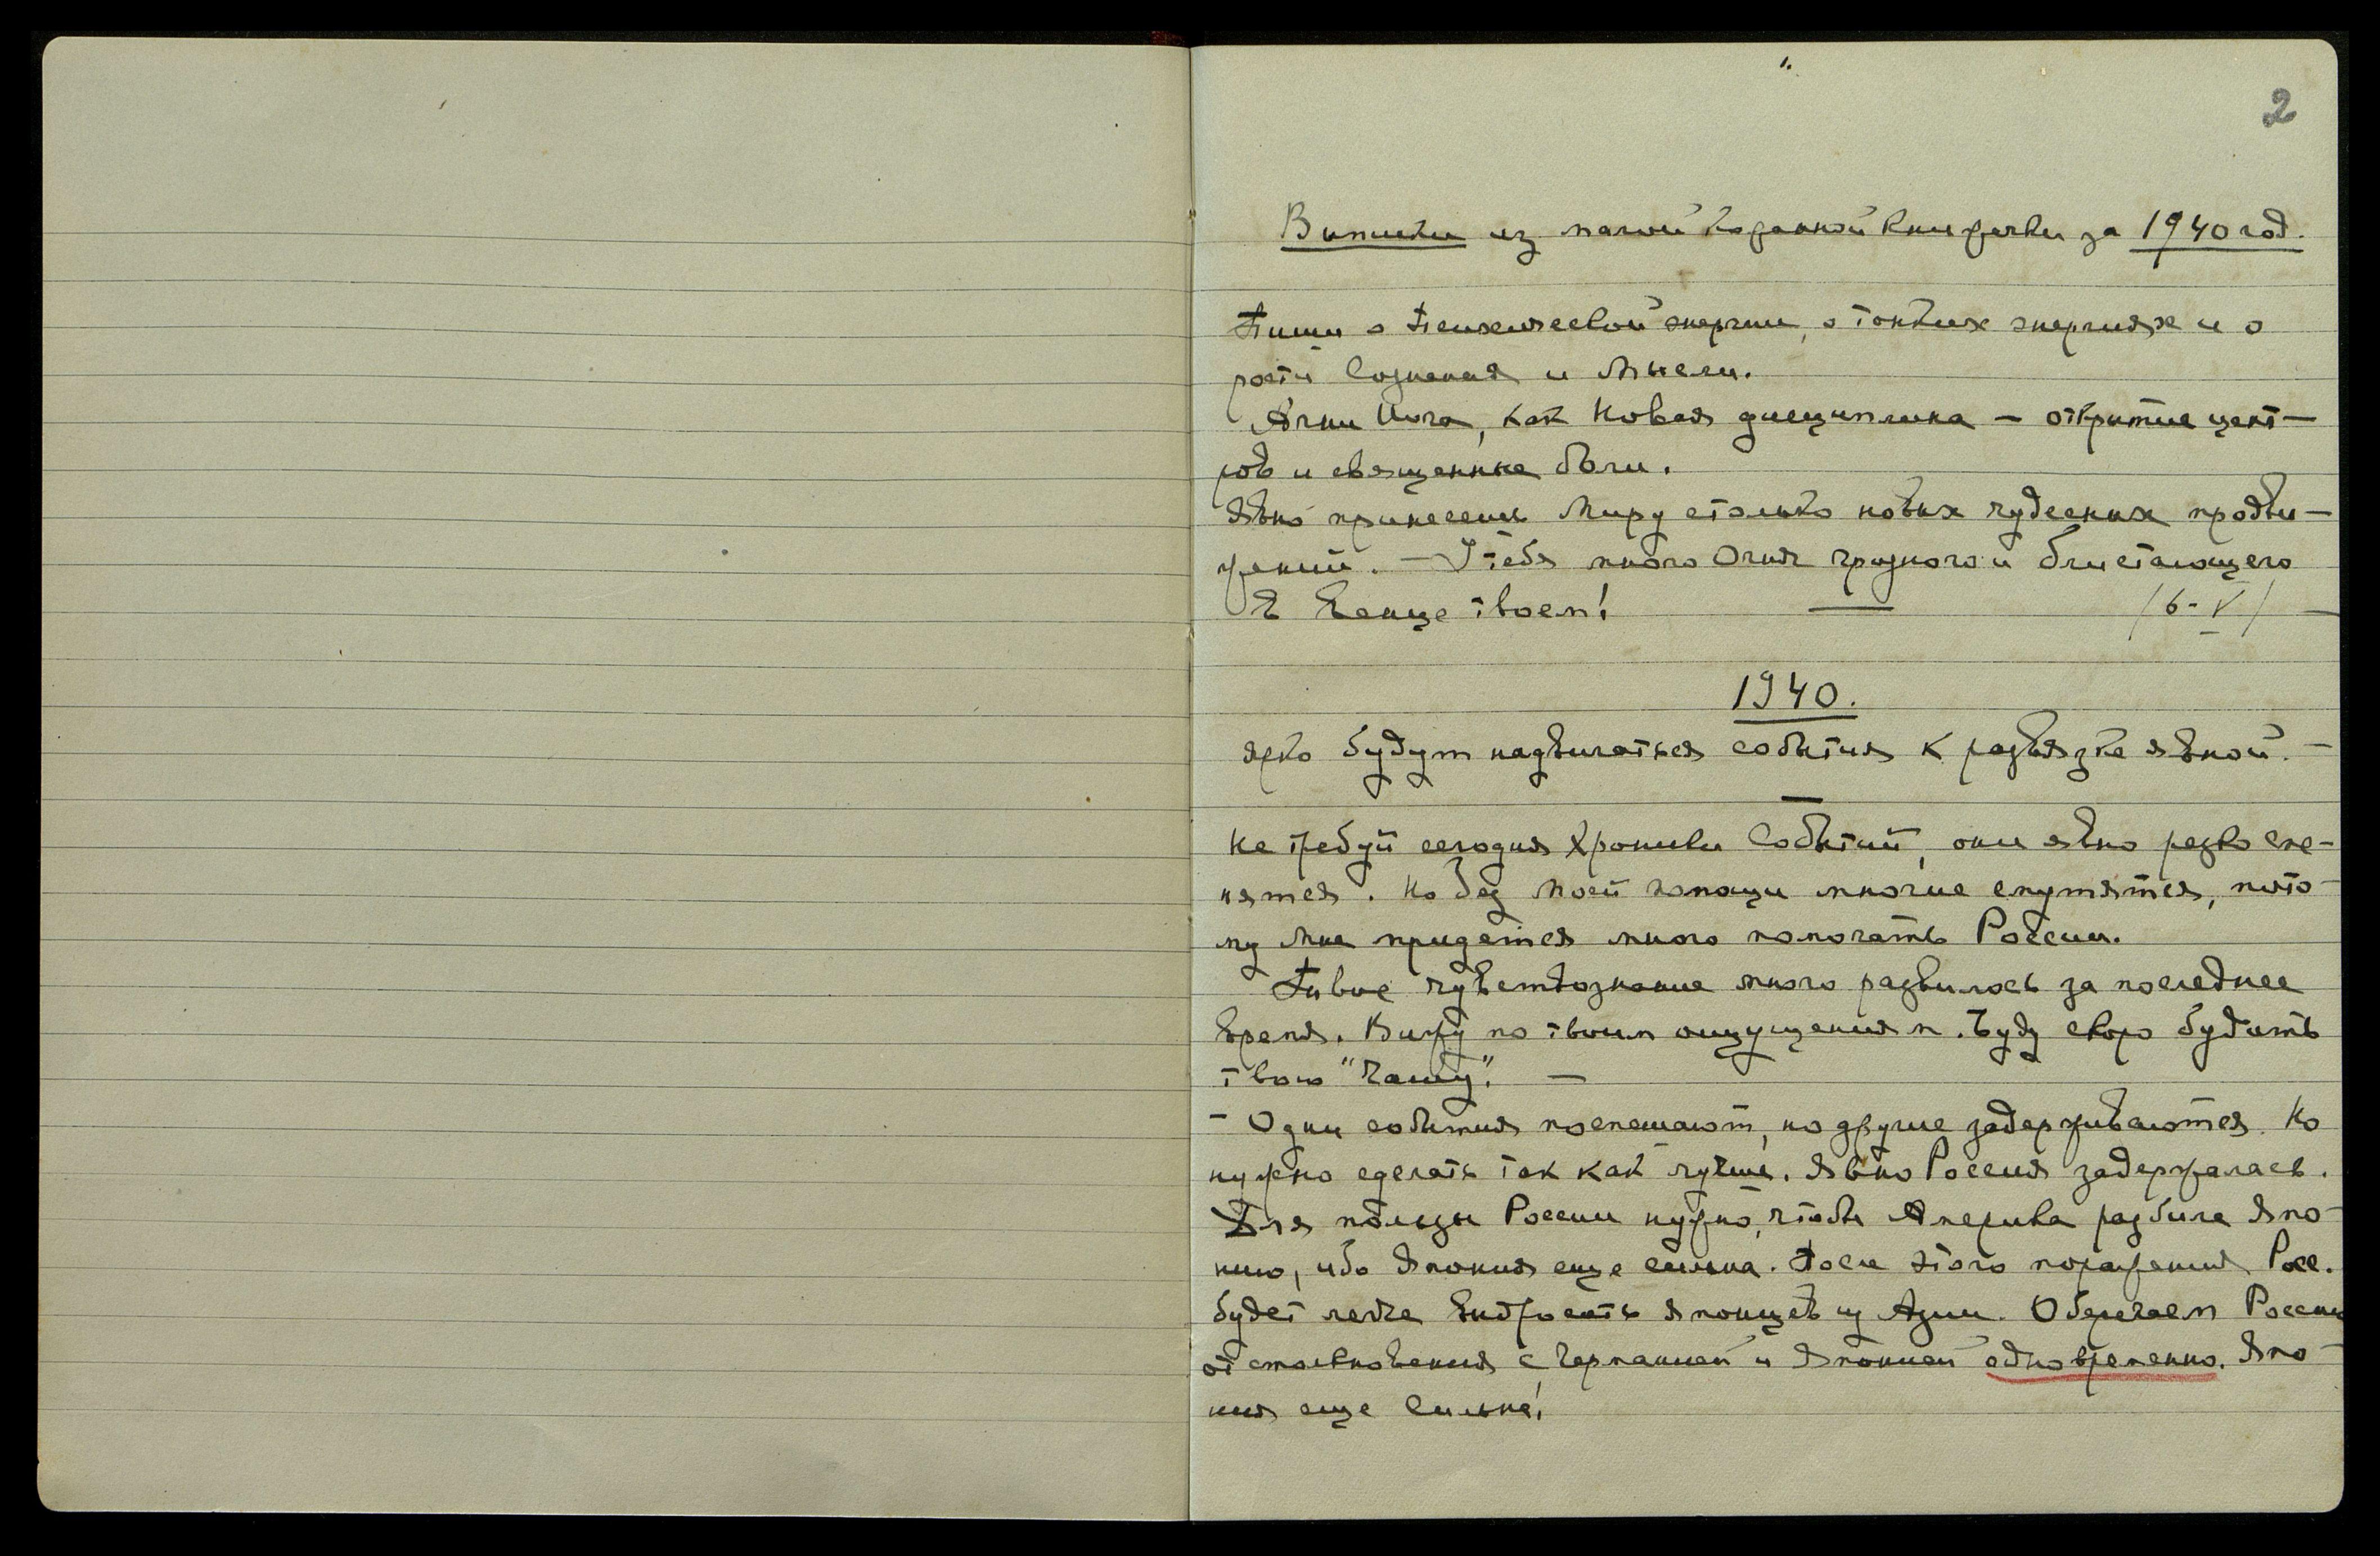 2
Выписки из малой карманной книжечки за 1940 год.
Пиши о Психической энергии, о тонких энергиях и о
росте Сознания и Мысли.
Агни Йога, как Новая дисциплина — открытие цент-
ров и священные боли.
Явно принесешь Миру столько новых чудесных продви-
жений. — У тебя много Огня грозного и блистающего
В Венце твоем! — (6-V) —
1940.
Ярко будут надвигаться события к развязке явной. —
Не требуй сегодня Хроники Событий, они явно резко сме-
нятся. Но без Моей помощи многие смутятся, пото-
му Мне придется много помогать России.
Твое чувствознание много развилось за последнее
время. Вижу по твоим ощущениям. Буду скоро будить
твою "Чашу". —
— Одни события поспешают, но другие задерживаются. Но
нужно сделать так как лучше. Явно Россия задержалась.
Для пользы России нужно, чтобы Америка разбила Япо-
нию, ибо Япония еще сильна. После этого поражения Росс.
будет легче выбросить японцев из Азии. Оберегаем Россию
от столкновения с Германией и Японией одновременно. Япо-
ния еще Сильна!